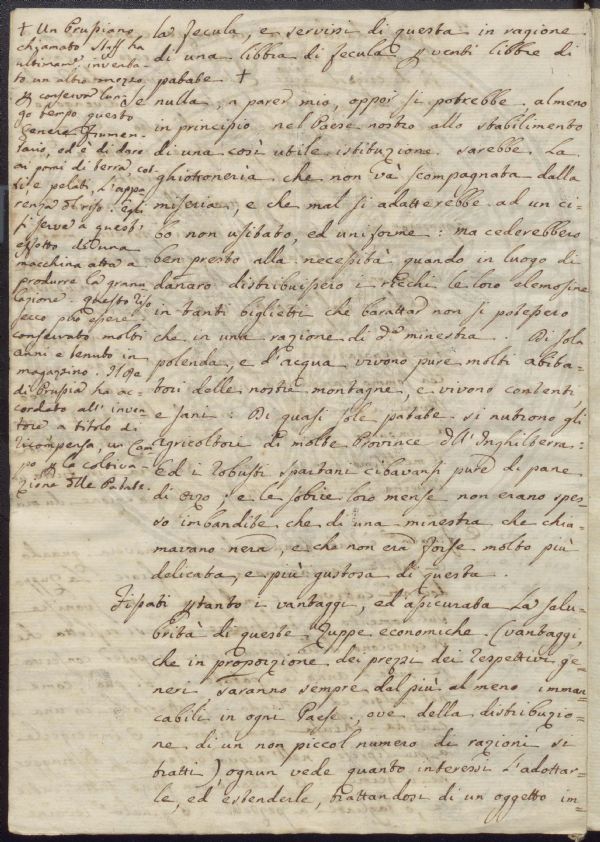 + Un Prussiano
chiamato Staff ha
ultimam.e inventa-
to un altro mezzo
p conservar lun-
go tempo questo
genere frumen-
tario, ed è di dare
ai pomi di terra, cot-
ti e pelati, l'appa-
renza di riso. Egli
si serve a quest'
effetto di una
macchina atta a
produrre la granu-
lazione. Questo riso
secco può essere
conservato molti
anni e tenuto in
magazzino. Il Re
di Prussia ha ac-
cordato all'inven-
tore a titolo di
ricompensa, un Cam-
po p la coltiva-
zione delle Patate.
la fecula, e servirsi di questa in ragione
di una libbra di fecula p venti libbre di
patate +
Se nulla, a parer mio, oppor si potrebbe, almeno
in principio, nel Paese nostro allo stabilimento
di una così utile istituzione, sarebbe la
ghiottoneria che non và scompagnata dalla
miseria, e che mal si adatterebbe ad un ci-
bo non usitato, ed uniforme: ma cederebbero
ben presto alla necessità quando in luogo di
danaro distribuissero i ricchi le loro elemosine
in tanti biglietti che barattar non si potessero
che in una razione di d.a minestra. Di sola
polenda, e d'acqua vivono pure molti abita-
tori delle nostre montagne, e vivono contenti,
e sani: Di quasi sole patate si nutrono gli
agricoltori di molte Province dell'Inghilterra:
Ed i robusti spartani cibavansi pure di pane
di orzo; e le sobrie loro mense non erano spes-
so imbandite che di una minestra, che chia-
mavano nera, e che non era forse molto più
delicata, e più gustosa di questa.
Fissati ptanto i vantaggi, ed assicurata la salu-
brità di queste Zuppe economiche (vantaggi,
che in proporzione dei prezzi dei respettivi ge-
neri, saranno sempre dal più al meno imman-
cabili in ogni Paese, ove della distribuzio-
ne di un non piccol numero di razioni si
tratti) ognun vede quanto interessi l'adottar-
le, ed estenderle, trattandosi di un oggetto im-